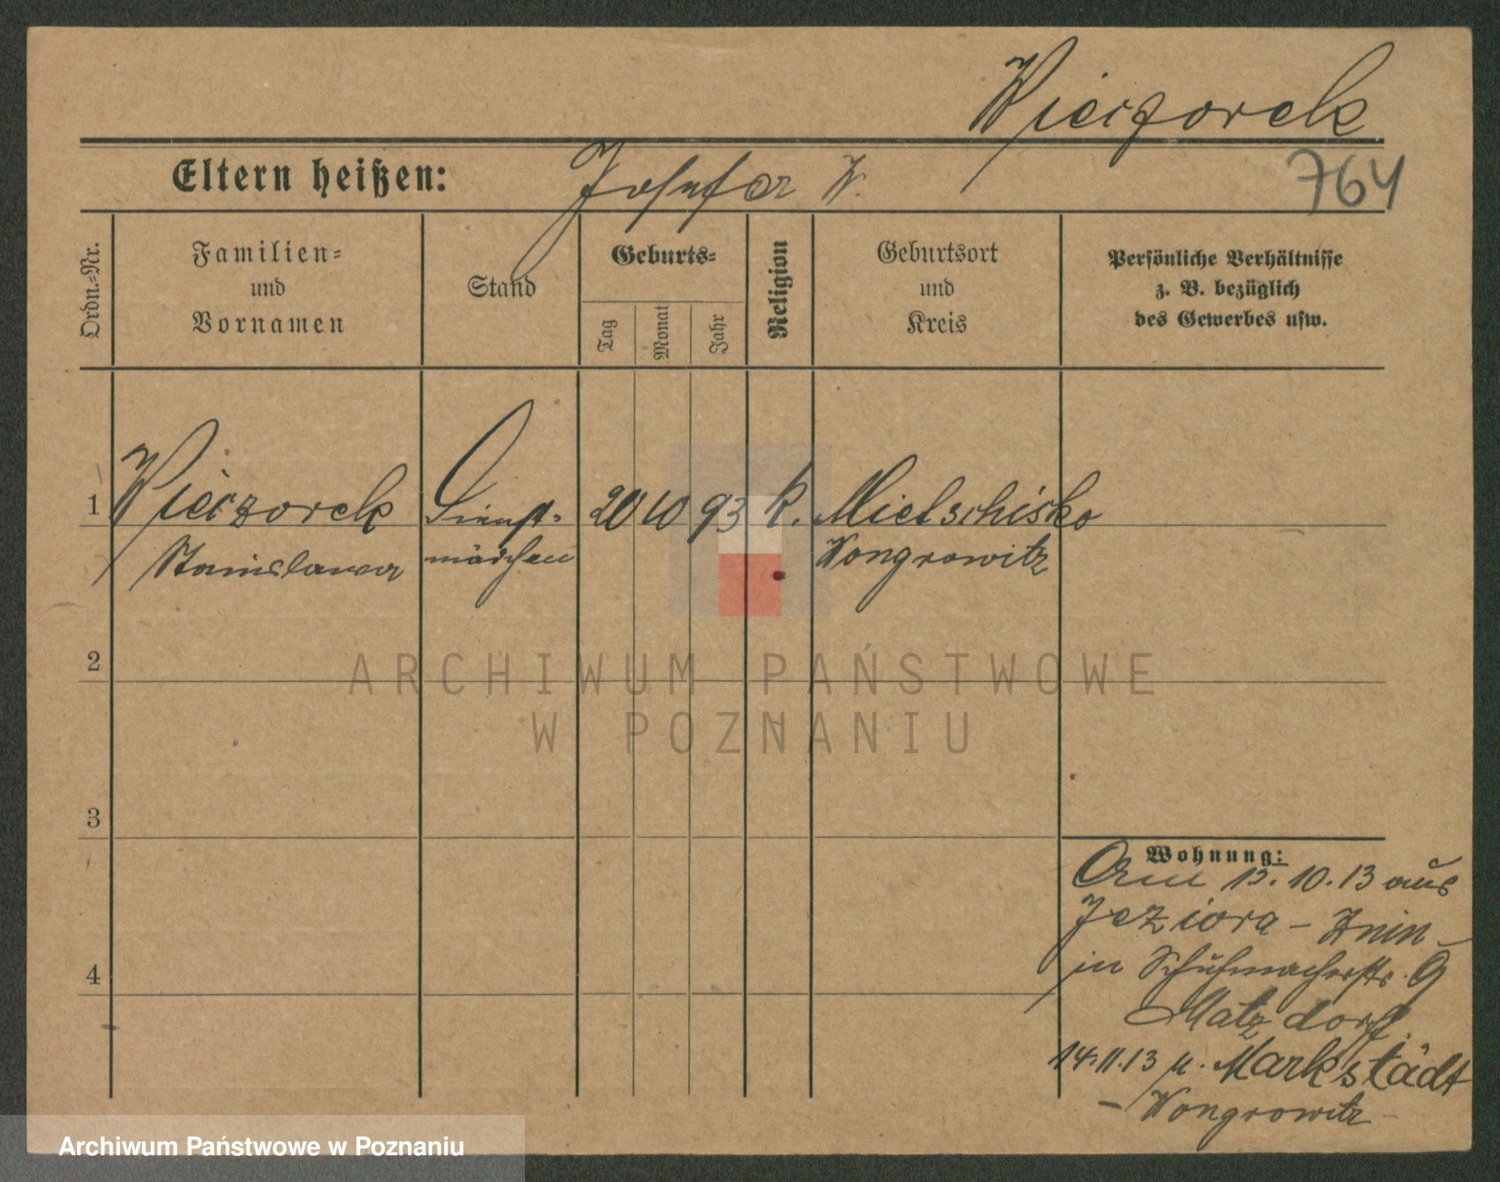 Wieczorek
Eltern heißen: Josefa W.
764
Ordn.-Nr.
Familien-
und
Vornamen
Stand
Geburts-
Tag
Monat
Jahr
Religion
Geburtsort
und
Kreis
Persönliche Verhältnisse
z. B. bezüglich
des Gewerbes usw.
1 Wieczorek Dienst- 20 10 93 k. Mietschisko
Stanislawa mädchen Wongrowitz
2
3
4
Wohnung:
Am 15.10.13 aus
Jeziora - Znin -
in Schuhmacherstr. 9
Matzdorf
14.11.13 n. Markstädt
- Wongrowitz -
ARCHIWUM PAŃSTWOWE
W POZNANIU
Archiwum Państwowe w Poznaniu